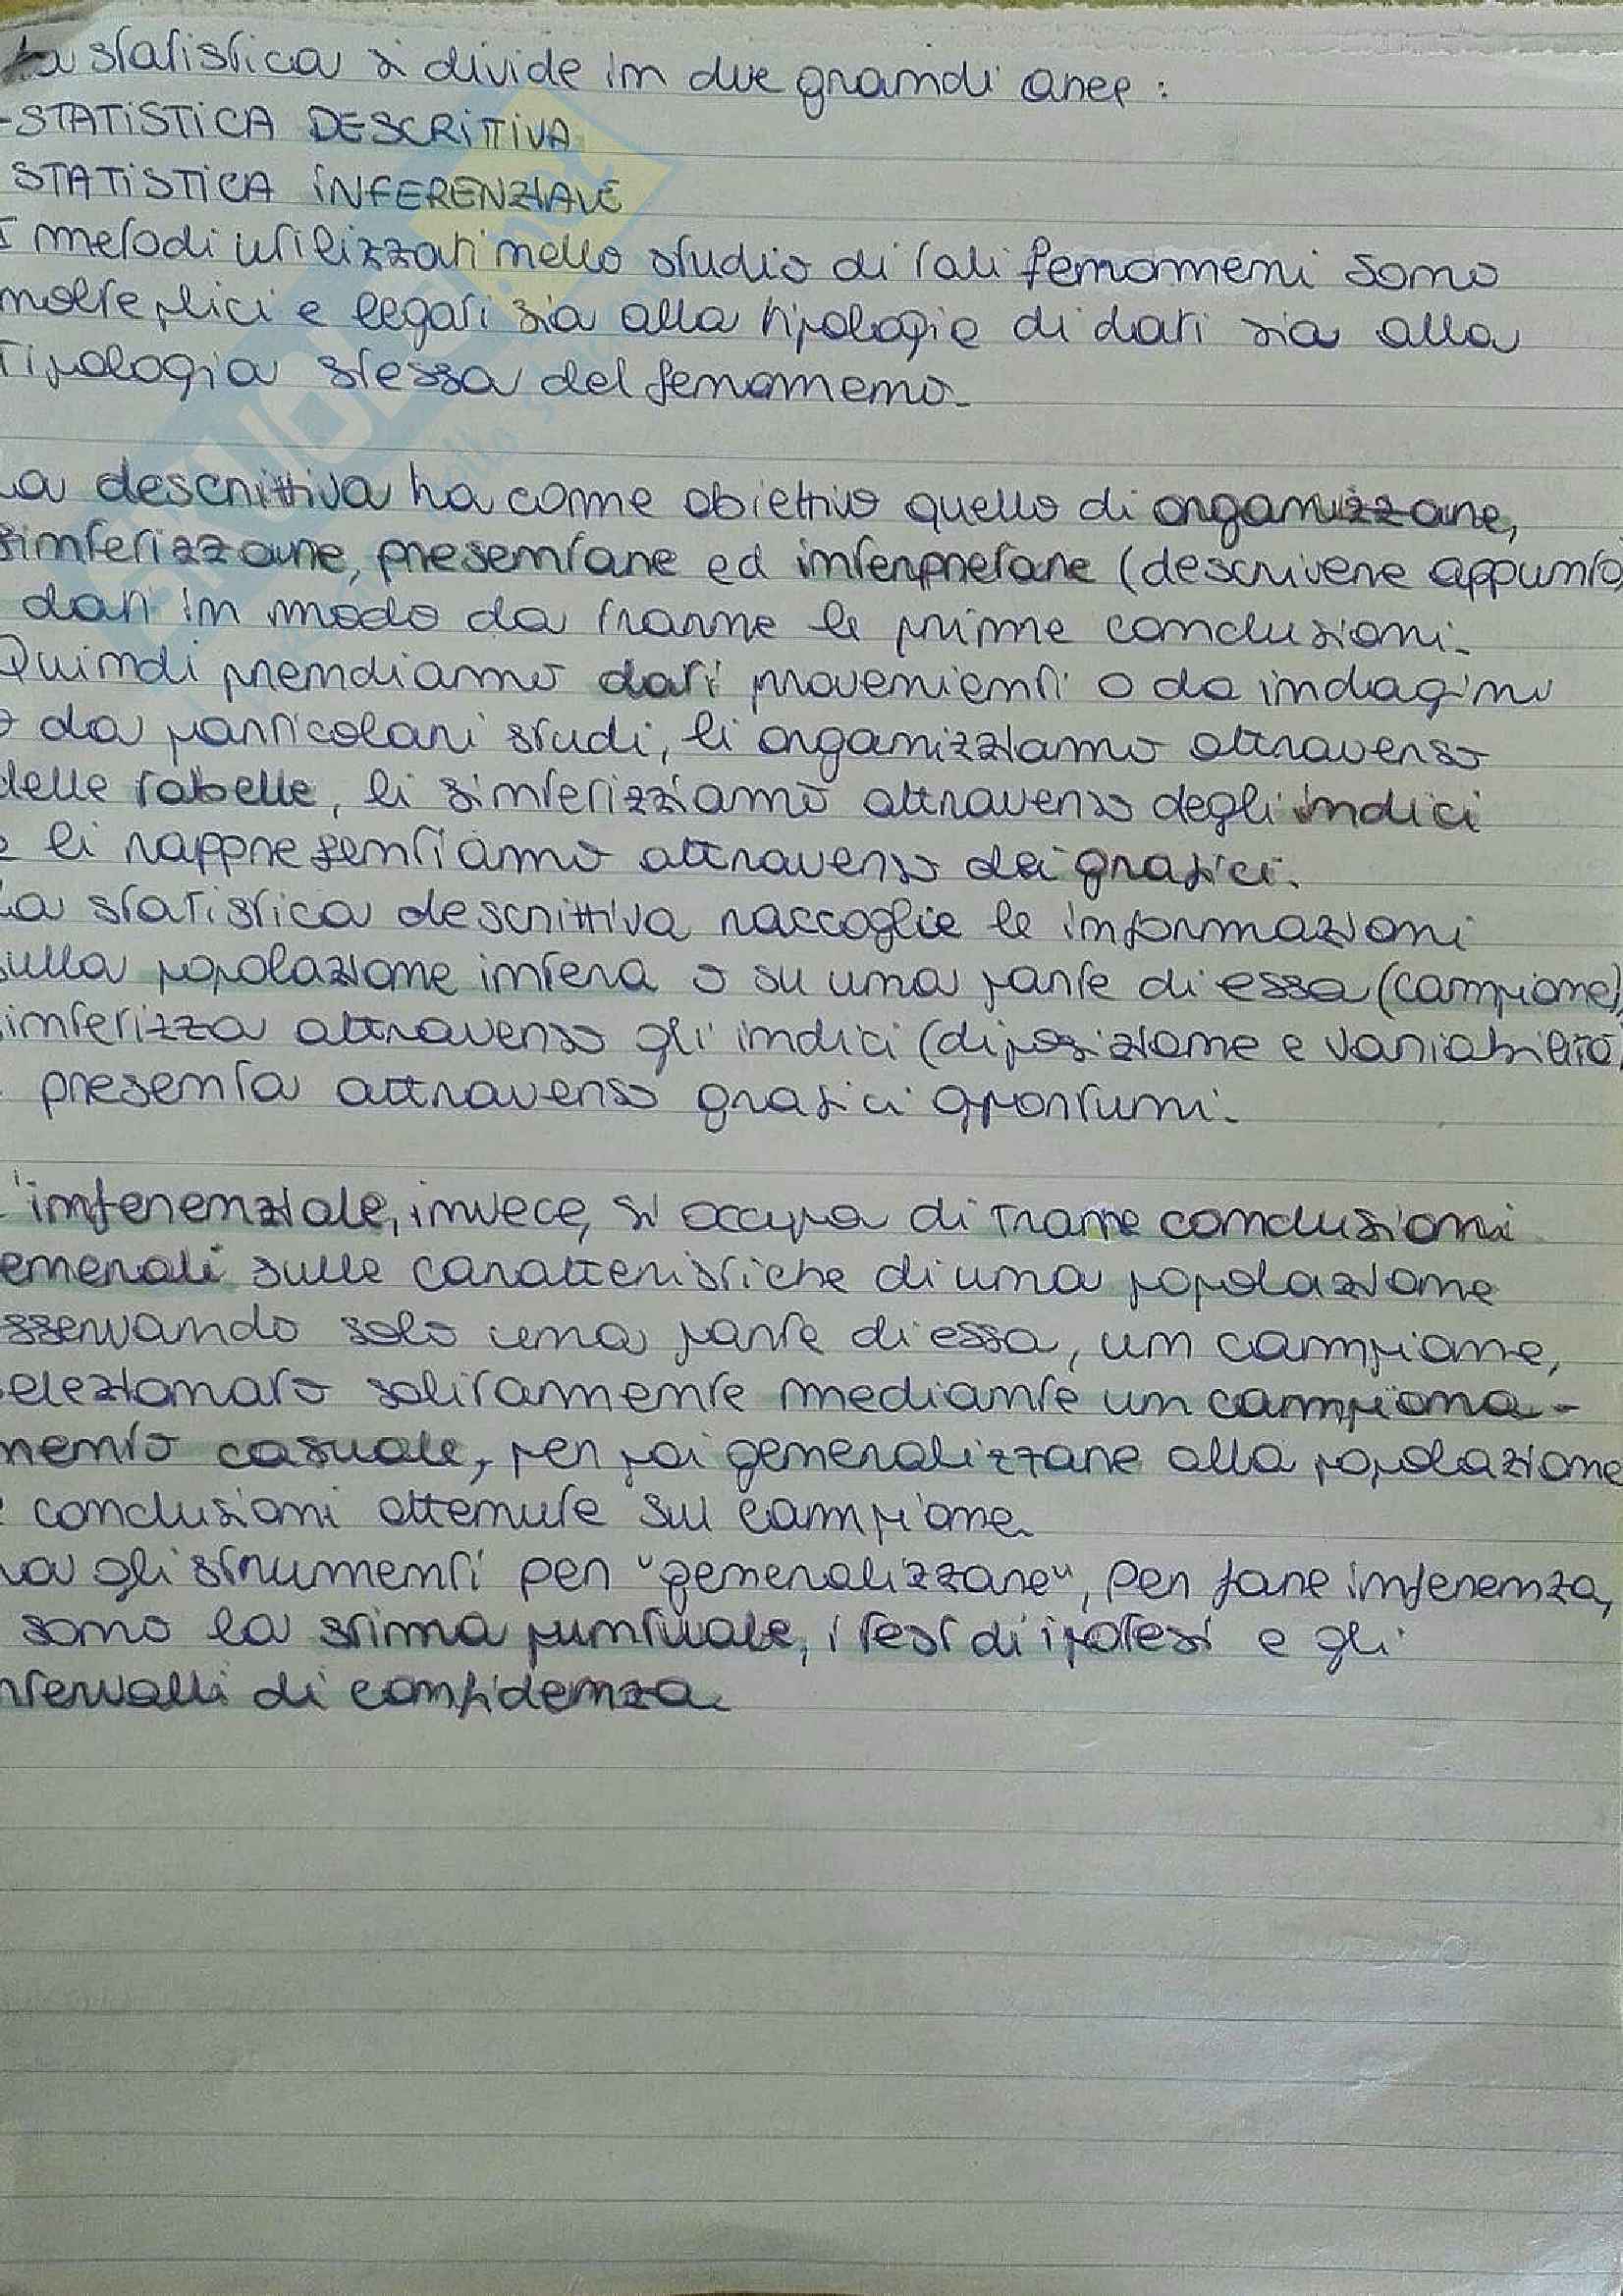 La statistica si divide in due grandi aree:
-STATISTICA DESCRITTIVA
STATISTICA INFERENZIALE
I metodi utilizzati nello studio di tali fenomeni sono
molteplici e legati sia alla tipologia di dati sia alla
tipologia stessa del fenomeno.
La descrittiva ha come obiettivo quello di organizzare,
sintetizzare, presentare ed interpretare (descrivere appunto)
dati in modo da trarre le prime conclusioni.
Quindi prendiamo dati provenienti o da indagini
o da particolari studi, li organizziamo attraverso
delle tabelle, li sintetizziamo attraverso degli indici
e li rappresentiamo attraverso dei grafici.
La statistica descrittiva raccoglie le informazioni
sulla popolazione intera o su una parte di essa (campione),
sintetizza attraverso gli indici (di posizione e variabilità)
presenta attraverso grafici opportuni.
L'inferenziale, invece, si occupa di trarre conclusioni
generali sulle caratteristiche di una popolazione
osservando solo una parte di essa, un campione,
selezionato solitamente mediante un campiona-
mento casuale, per poi generalizzare alla popolazione
le conclusioni ottenute sul campione.
Ma gli strumenti per "generalizzare", per fare inferenza,
sono la stima puntuale, i test di ipotesi e gli
intervalli di confidenza.